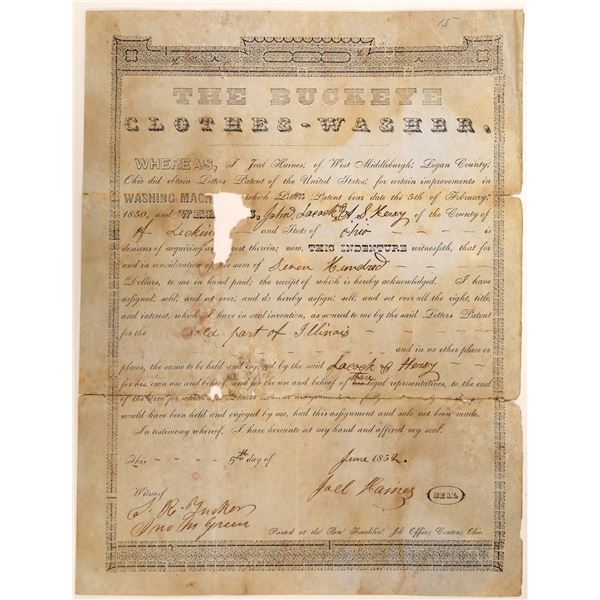 15
THE BUCKEYE
CLOTHES-WASHER.
WHEREAS, I Joel Haines; of West Middleburgh; Logan County;
Ohio did obtain Letters Patent of the United States; for certain improvements in
WASHING MAC which Letters Patent bear date the 5th of February;
1850, and WH S, John Lacock & A. S. Hervy of the County
of Licking and State of Ohio
is desirous of acquiring an interest therein; now, THIS INDENTURE witnesseth, that for
and in consideration of the sum of Seven Hundred
Dollars, to me in hand paid; the receipt of which is hereby acknowledged. I have
assigned; sold; and set over; and do hereby assign; sell; and set over all the right, title;
and interest, which I have in said invention, as secured to me by the said Letters Patent
for the sold part of Illinois
and in no other place or
places, the same to be held and enjoyed by the said Lacock & Hervy
for his, own use and behoof and for the use and behoof of their his legal representatives, to the end
of the term for which Letters Patent
would have been held and enjoyed by me, had this assignment and sale not been made.
In testimony whereof. I have hereunto set my hand and affixed my seal.
This 5th day of June 1852.
Witness Joel Haines SEAL
Jno M Green
Printed at the Ben Franklin Job Office; Canton; Ohio